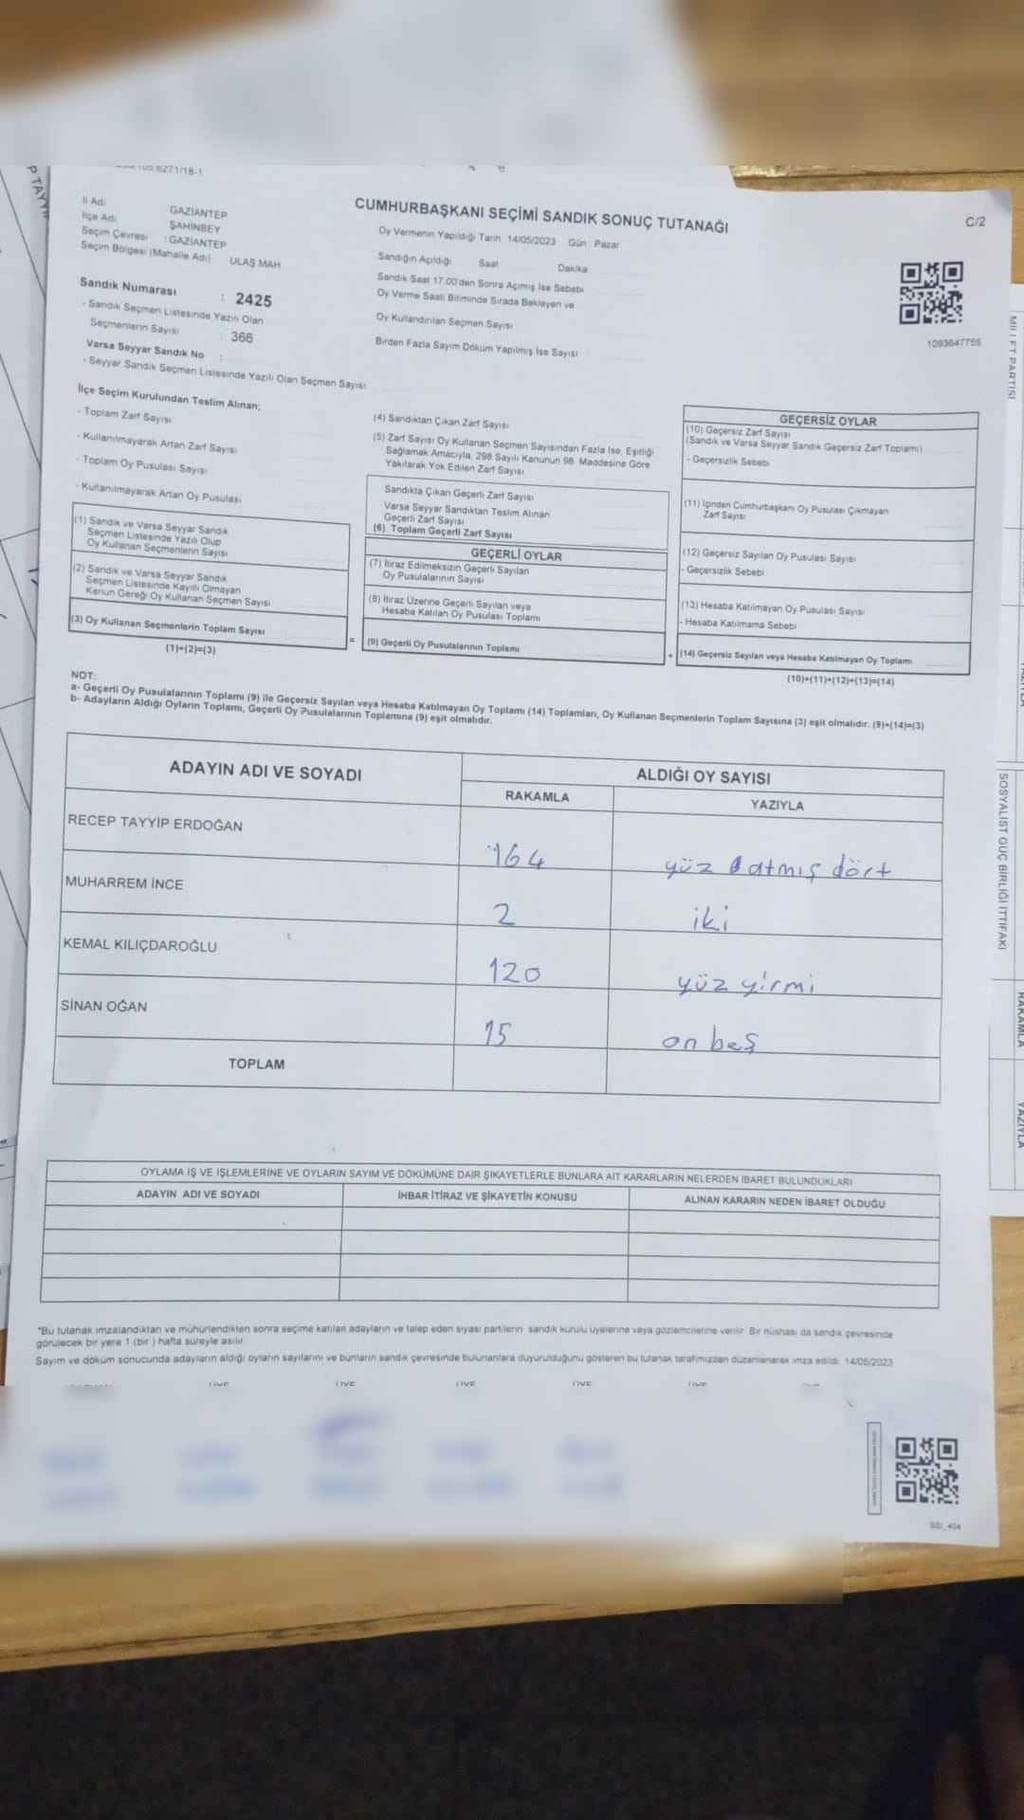 CUMHURBAŞKANI SEÇİMİ SANDIK SONUÇ TUTANAĞI
C/2
İl Adı GAZİANTEP
İlçe Adı ŞAHİNBEY
Seçim Çevresi : GAZİANTEP
Seçim Bölgesi (Mahalle Adı) ULAŞ MAH
Sandık Numarası : 2425
- Sandık Seçmen Listesinde Yazılı Olan
Seçmenlerin Sayısı 366
Varsa Seyyar Sandık No :
- Seyyar Sandık Seçmen Listesinde Yazılı Olan Seçmen Sayısı
Oy Vermenin Yapıldığı Tarih 14/05/2023 Gün Pazar
Sandığın Açıldığı Saat Dakika
Sandık Saat 17.00'den Sonra Açılmış İse Sebebi
Oy Verme Saati Bitiminde Sırada Bekleyen ve
Oy Kullandırılan Seçmen Sayısı
Birden Fazla Sayım Döküm Yapılmış İse Sayısı
1093647755
İlçe Seçim Kurulundan Teslim Alınan;
- Toplam Zarf Sayısı
- Kullanılmayarak Artan Zarf Sayısı
- Toplam Oy Pusulası Sayısı
- Kullanılmayarak Artan Oy Pusulası
(1) Sandık ve Varsa Seyyar Sandık
Seçmen Listesinde Yazılı Olup
Oy Kullanan Seçmenlerin Sayısı
(2) Sandık ve Varsa Seyyar Sandık
Seçmen Listesinde Kayıtlı Olmayan
Kanun Gereği Oy Kullanan Seçmen Sayısı
(3) Oy Kullanan Seçmenlerin Toplam Sayısı
(1)+(2)=(3)
(4) Sandıktan Çıkan Zarf Sayısı
(5) Zarf Sayısı Oy Kullanan Seçmen Sayısından Fazla İse, Eşitliği
Sağlamak Amacıyla, 298 Sayılı Kanunun 98. Maddesine Göre
Yakılarak Yok Edilen Zarf Sayısı
Sandıkta Çıkan Geçerli Zarf Sayısı
Varsa Seyyar Sandıktan Teslim Alınan
Geçerli Zarf Sayısı
(6) Toplam Geçerli Zarf Sayısı
GEÇERLİ OYLAR
(7) İtiraz Edilmeksizin Geçerli Sayılan
Oy Pusulalarının Sayısı
(8) İtiraz Üzerine Geçerli Sayılan veya
Hesaba Katılan Oy Pusulası Toplamı
= (9) Geçerli Oy Pusulalarının Toplamı
GEÇERSİZ OYLAR
(10) Geçersiz Zarf Sayısı
(Sandık ve Varsa Seyyar Sandık Geçersiz Zarf Toplamı)
- Geçersizlik Sebebi
(11) İçinden Cumhurbaşkanı Oy Pusulası Çıkmayan
Zarf Sayısı
(12) Geçersiz Sayılan Oy Pusulası Sayısı
- Geçersizlik Sebebi
(13) Hesaba Katılmayan Oy Pusulası Sayısı
- Hesaba Katılmama Sebebi
+ (14) Geçersiz Sayılan veya Hesaba Katılmayan Oy Toplamı
(10)+(11)+(12)+(13)=(14)
NOT:
a- Geçerli Oy Pusulalarının Toplamı (9) ile Geçersiz Sayılan veya Hesaba Katılmayan Oy Toplamı (14) Toplamları, Oy Kullanan Seçmenlerin Toplam Sayısına (3) eşit olmalıdır. (9)+(14)=(3)
b- Adayların Aldığı Oyların Toplamı, Geçerli Oy Pusulalarının Toplamına (9) eşit olmalıdır.
ADAYIN ADI VE SOYADI ALDIĞI OY SAYISI
RAKAMLA YAZIYLA
RECEP TAYYİP ERDOĞAN 164 yüz atmış dört
MUHARREM İNCE 2 iki
KEMAL KILIÇDAROĞLU 120 yüz yirmi
SİNAN OĞAN 15 on beş
TOPLAM
OYLAMA İŞ VE İŞLEMLERİNE VE OYLARIN SAYIM VE DÖKÜMÜNE DAİR ŞİKAYETLERLE BUNLARA AİT KARARLARIN NELERDEN İBARET BULUNDUKLARI
ADAYIN ADI VE SOYADI İHBAR İTİRAZ VE ŞİKAYETİN KONUSU ALINAN KARARIN NEDEN İBARET OLDUĞU
*Bu tutanak imzalandıktan ve mühürlendikten sonra seçime katılan adayların ve talep eden siyasi partilerin sandık kurulu üyelerine veya gözlemcilerine verilir. Bir nüshası da sandık çevresinde
görülecek bir yere 1 (bir ) hafta süreyle asılır.
Sayım ve döküm sonucunda adayların aldığı oyların sayılarını ve bunların sandık çevresinde bulunanlara duyurulduğunu gösteren bu tutanak tarafımızdan düzenlenerek imza edildi. 14/05/2023
MİLLET PARTİSİ
SOSYALİST GÜÇ BİRLİĞİ İTTİFAKI
RAKAMLA
YAZIYLA